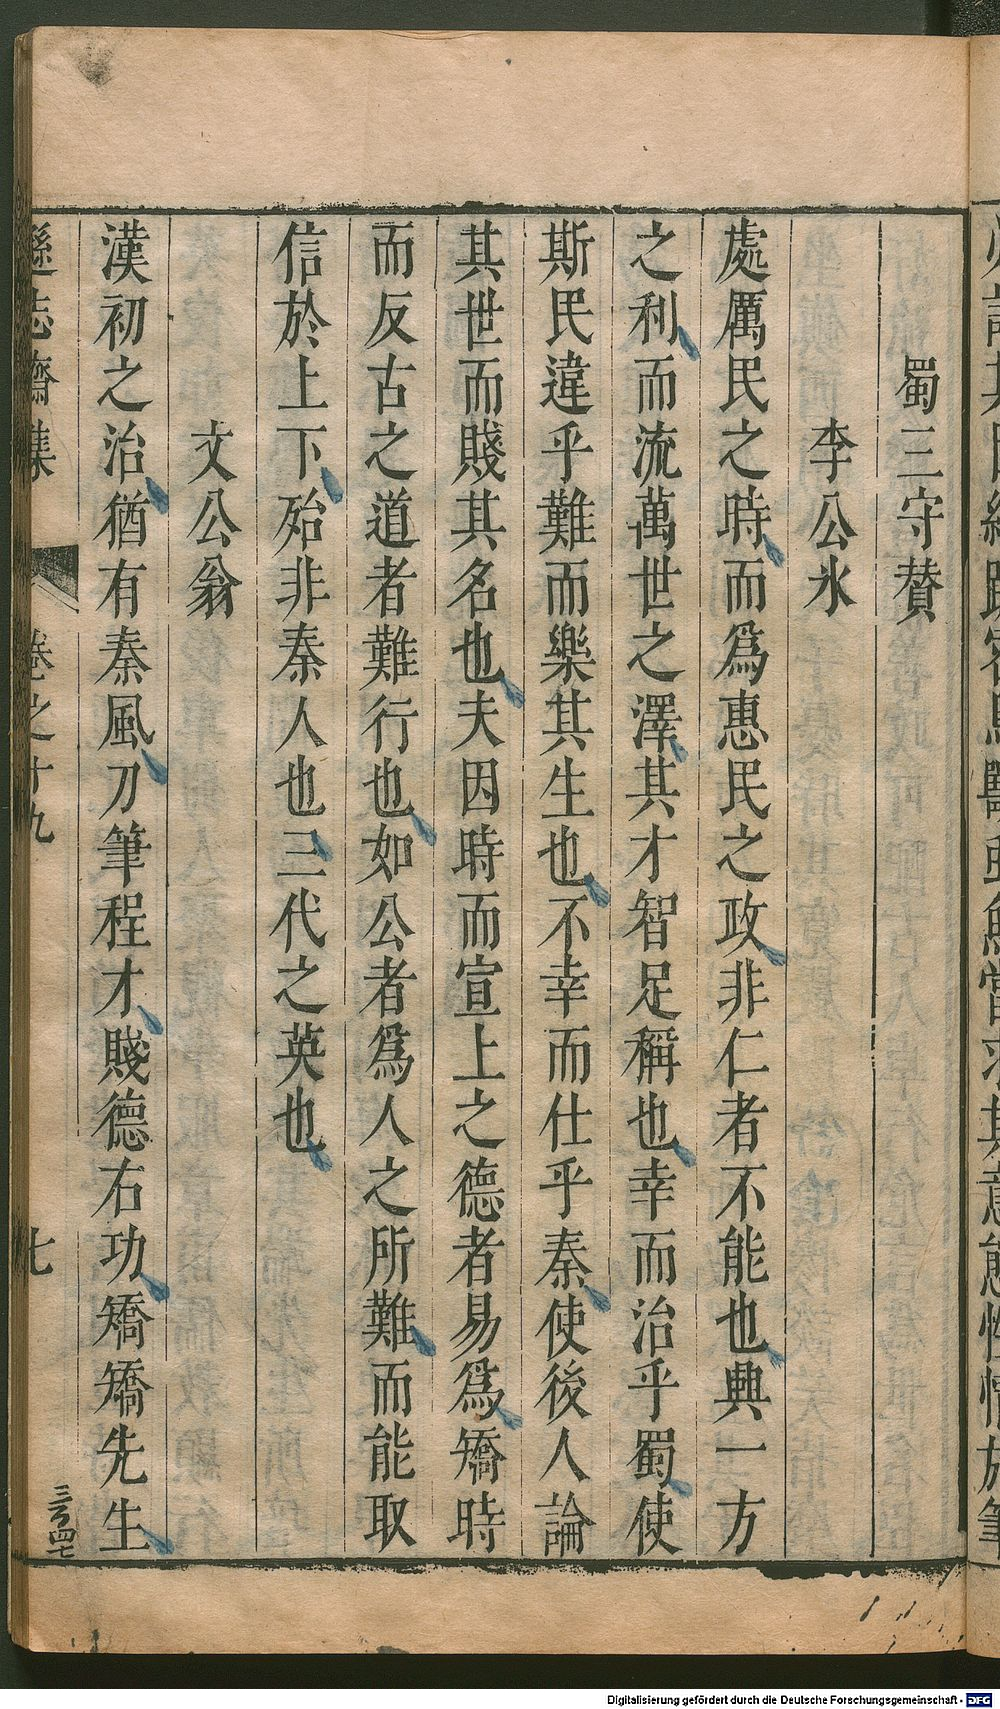 蜀三守賛
李公氷
處厲民之時而爲惠民之政非仁者不能也興一方
之利而流萬世之澤其才智足稱也幸而治乎蜀使
斯民違乎難而樂其生也不幸而仕乎秦使後人論
其世而賤其名也夫因時而宣上之德者易爲矯時
而反古之道者難行也如公者爲人之所難而能取
信於上下殆非秦人也三代之英也
文公翁
漢初之治猶有秦風刀筆程才賤德右功矯矯先生
遜志齋集
卷之十九
七
Digitalisierung gefördert durch die Deutsche Forschungsgemeinschaft - DFG